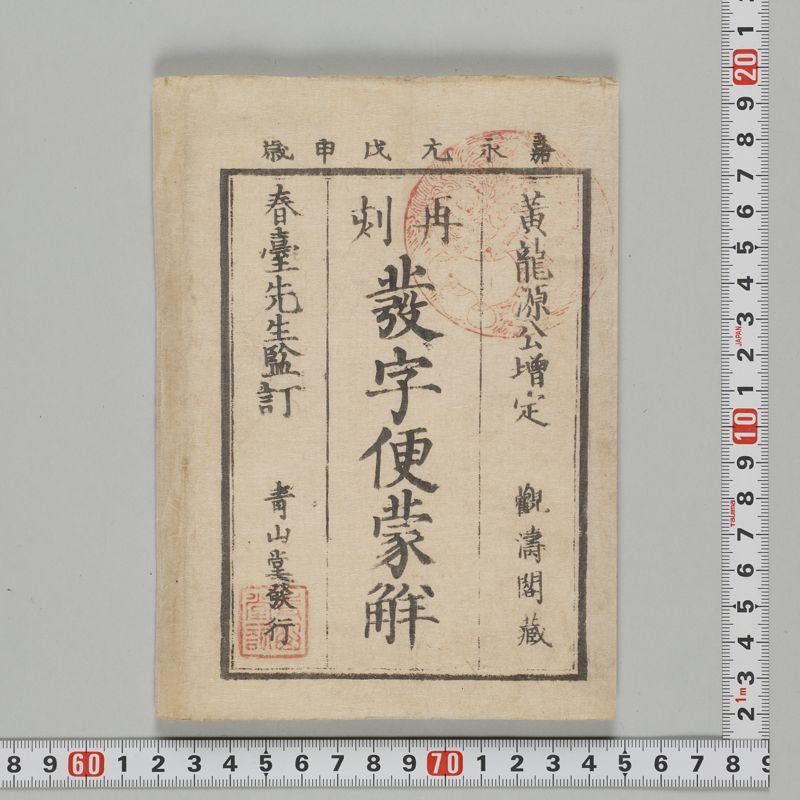 嘉永元戊申歳
黄龍源公增定 觀濤閣藏
再刻
發字便蒙解
春臺先生監訂 青山堂發行
1 20 9 8 7 6 5 4 3 2 1 10 9 8 7 6 5 4 3 2
JAPAN
Tajima
1m
8 9 60 1 2 3 4 5 6 7 8 9 70 1 2 3 4 5 6 7 8 9